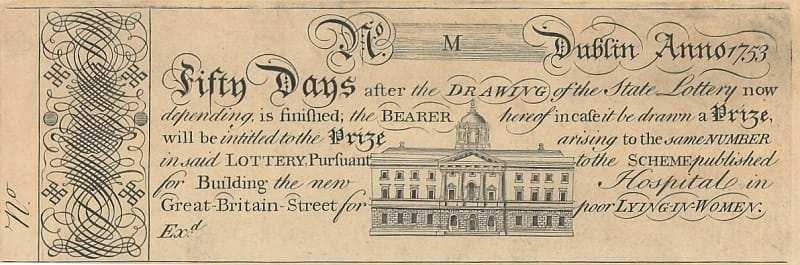 No. M Dublin Anno 1753
Fifty Days after the DRAWING of the State Lottery now
depending, is finished; the BEARER hereof in case it be drawn a Prize,
will be intitled to the Prize arising to the same NUMBER
in said LOTTERY. Pursuant to the SCHEME published
for Building the new Hospital in
Great-Britain-Street for poor LYING-IN-WOMEN.
Exd
No